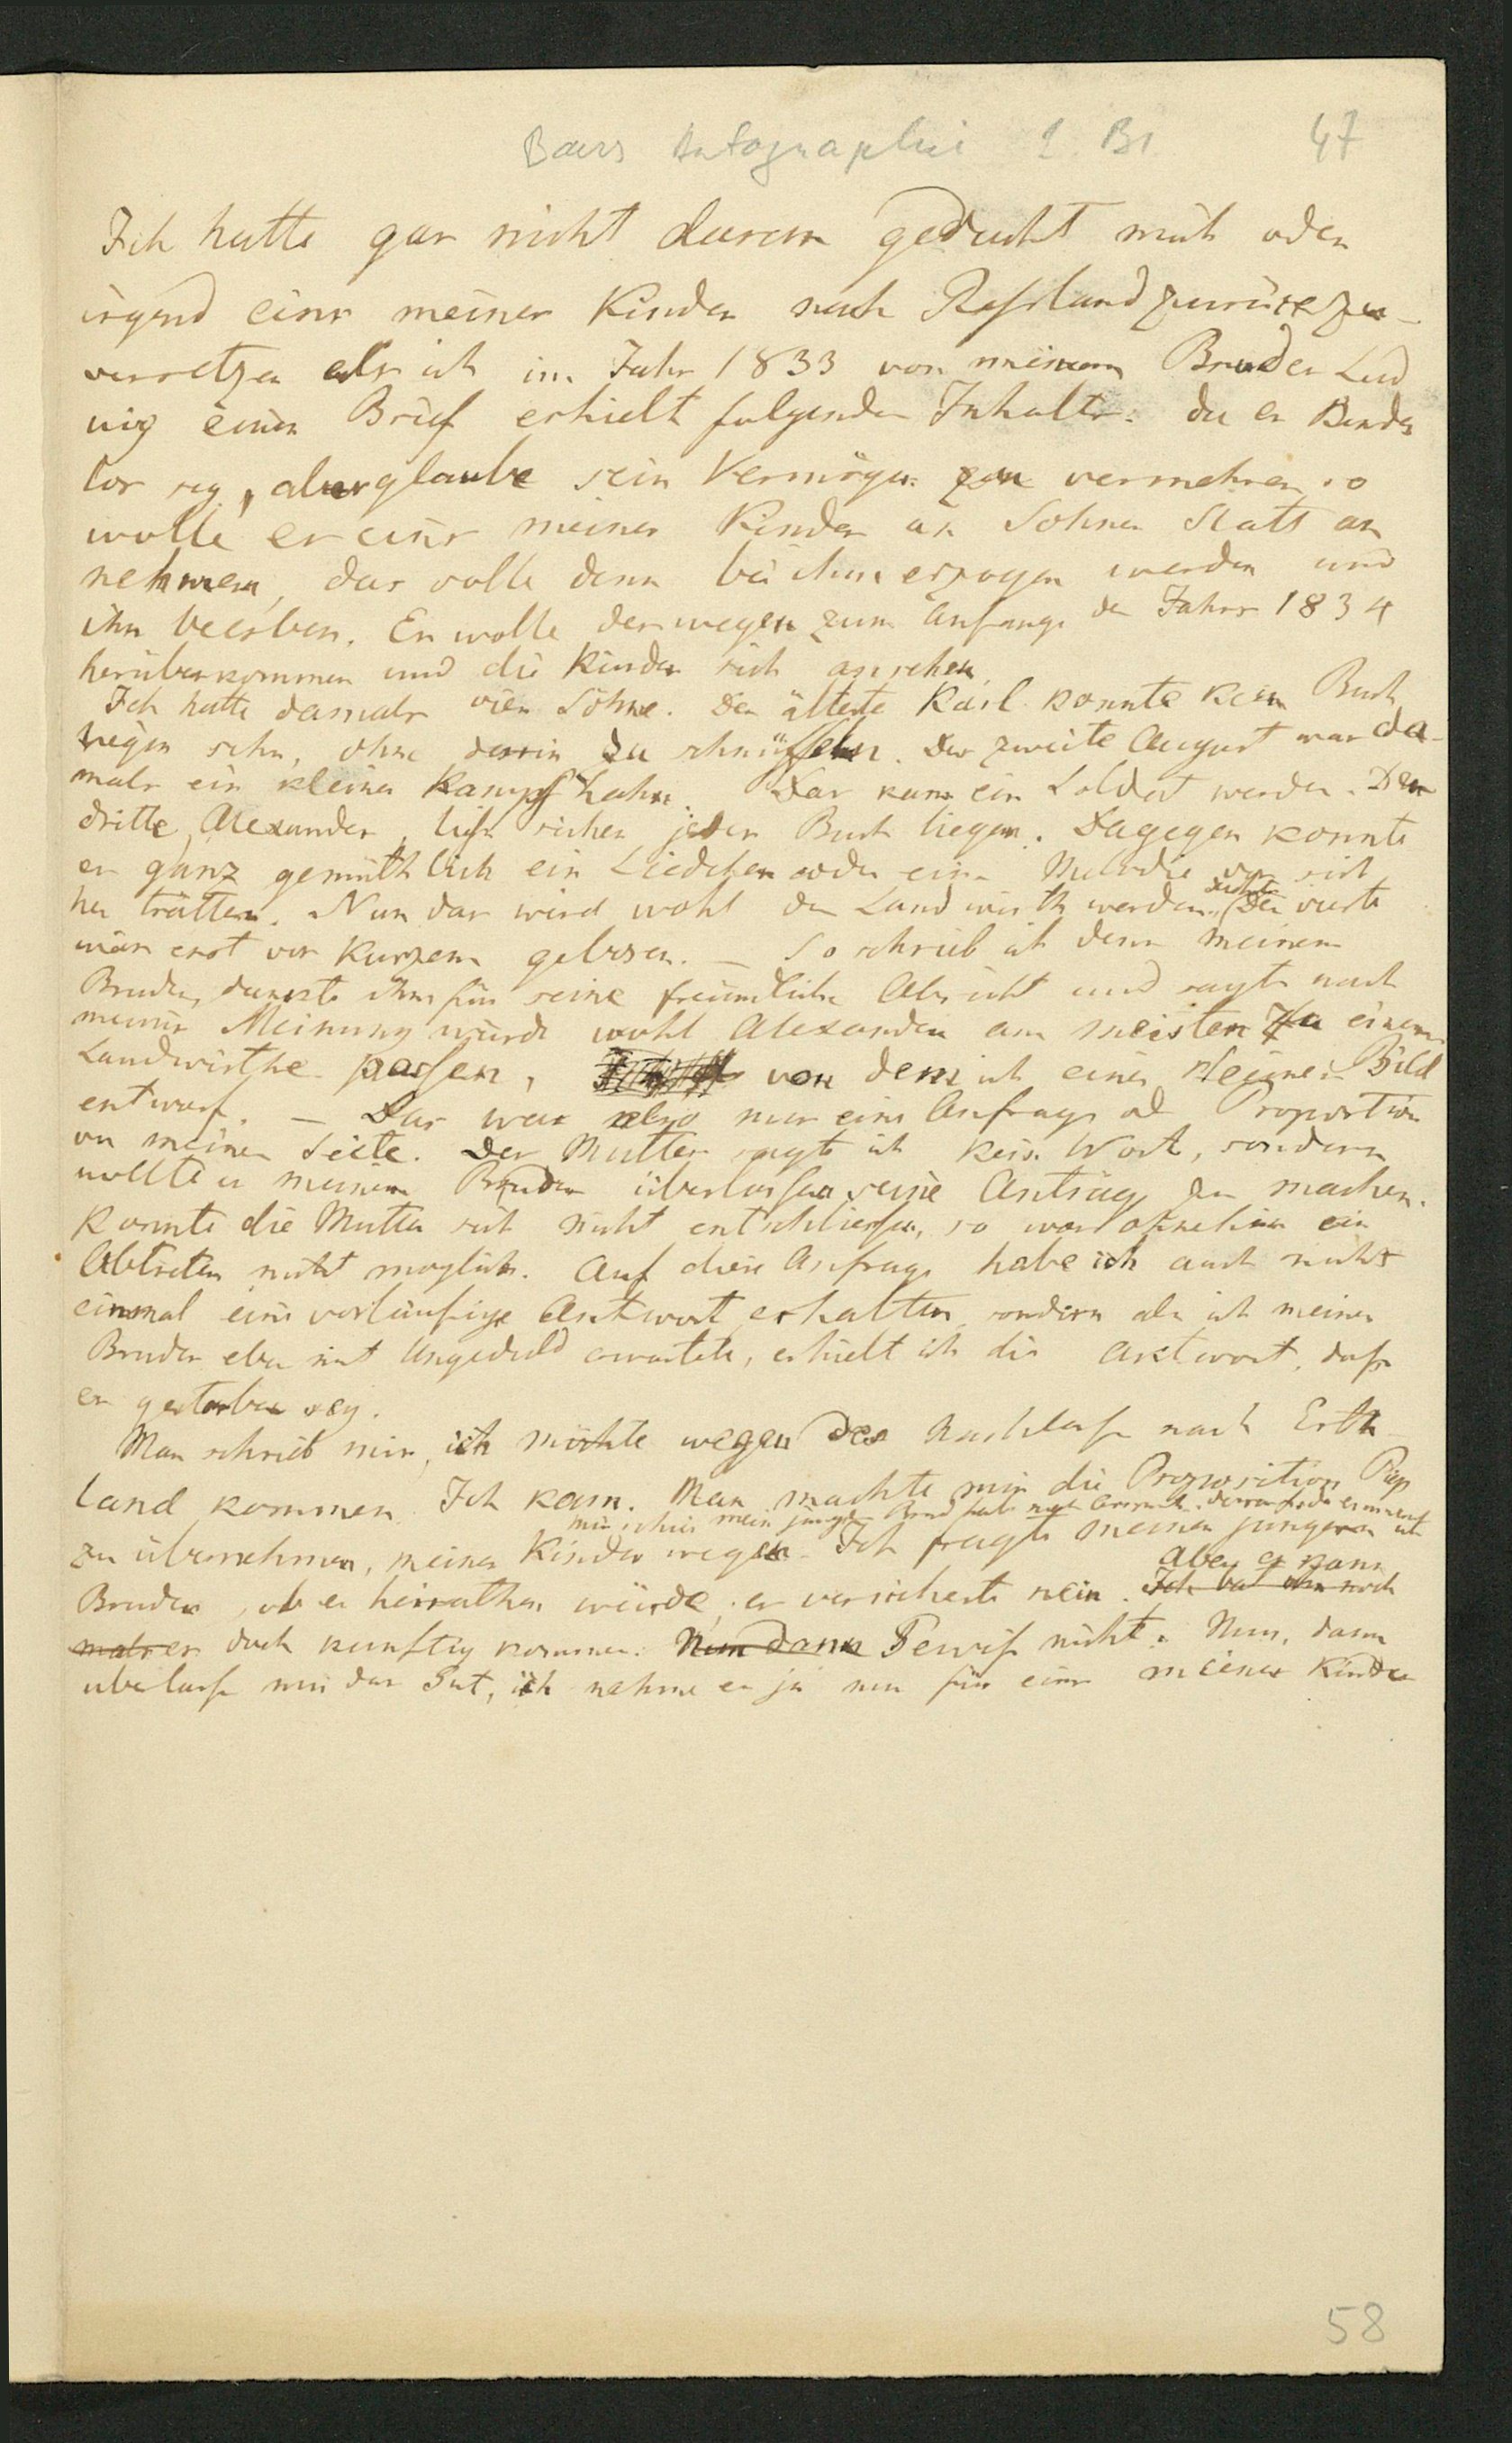 Baers Autographie 2 Bl 47
Ich hatte gar nicht daran gedacht mich oder
irgend eins meiner Kinder nach Rußland zurück zu
versetzen als ich im Jahr 1833 von meinem Bruder Lud
wig einen Brief erhielt folgenden Inhalts: da er kinder
los sey, aber glaube sein Vermögen zu vermehren, so
wolle er eins meiner Kinder an Sohnes Statt an
nehmen, das solle dann bei ihm erzogen werden und
ihn beerben. Er wolle deswegen zum Anfange des Jahrs 1834
herüberkommen und die Kinder sich ansehen.
Ich hatte damals vier Söhne. Der älteste Karl konnte kein Buch
liegen sehn, ohne darin zu schnüffeln. Der zweite August war da-
mals ein kleiner Kampfhahn. Das kann ein Soldat werden. Der
dritte, Alexander, ließ sicher jedes Buch liegen. Dagegen konnte
er ganz gemüthlich ein Liedchen oder eine Melodie vor sich
her trällern. Nun das wird wohl der Landwirth werden, dachte ich. Der vierte
war erst vor Kurzem geboren. — So schrieb ich denn meinem
Bruder, dankte ihm für seine freundliche Absicht und sagte nach
meiner Meinung würde wohl Alexander am meisten zu einem
Landwirthe passen, von dem ich eines kleines Bild
entwarf. — Das war also nur eine Anfrage als Proposition
von meiner Seite. Der Mutter sagte ich kein Wort, sondern
wollte es meinem Bruder überlassen seine Anträge zu machen.
Konnte die Mutter sich nicht entschließen, so war ohnehin ein
Abtreten nicht möglich. Auf diese Anfrage habe ich auch nicht
einmal eine vorläufige Antwort erhalten, sondern als ich meinen
Bruder eben mit Ungeduld erwartete, erhielt ich die Antwort, daß
er gestorben sey.
Man schrieb mir, ich möchte wegen des Nachlasses nach Esth-
land kommen. Ich kam. Man machte mir die Proposition Piep
mir schien mein jüngerer Bruder habe
zu übernehmen, meiner Kinder wegen. Ich fragte meinen jüngern
Aber es kann
Bruder, ob er heirathen würde, er versicherte nein. Ich bat ihn noch
mals er doch künftig kommen. Nun dann Gewiß nicht. Nun, dann
überlasse mir das Gut, ich nehme es ja nur für eins meiner Kinder
58